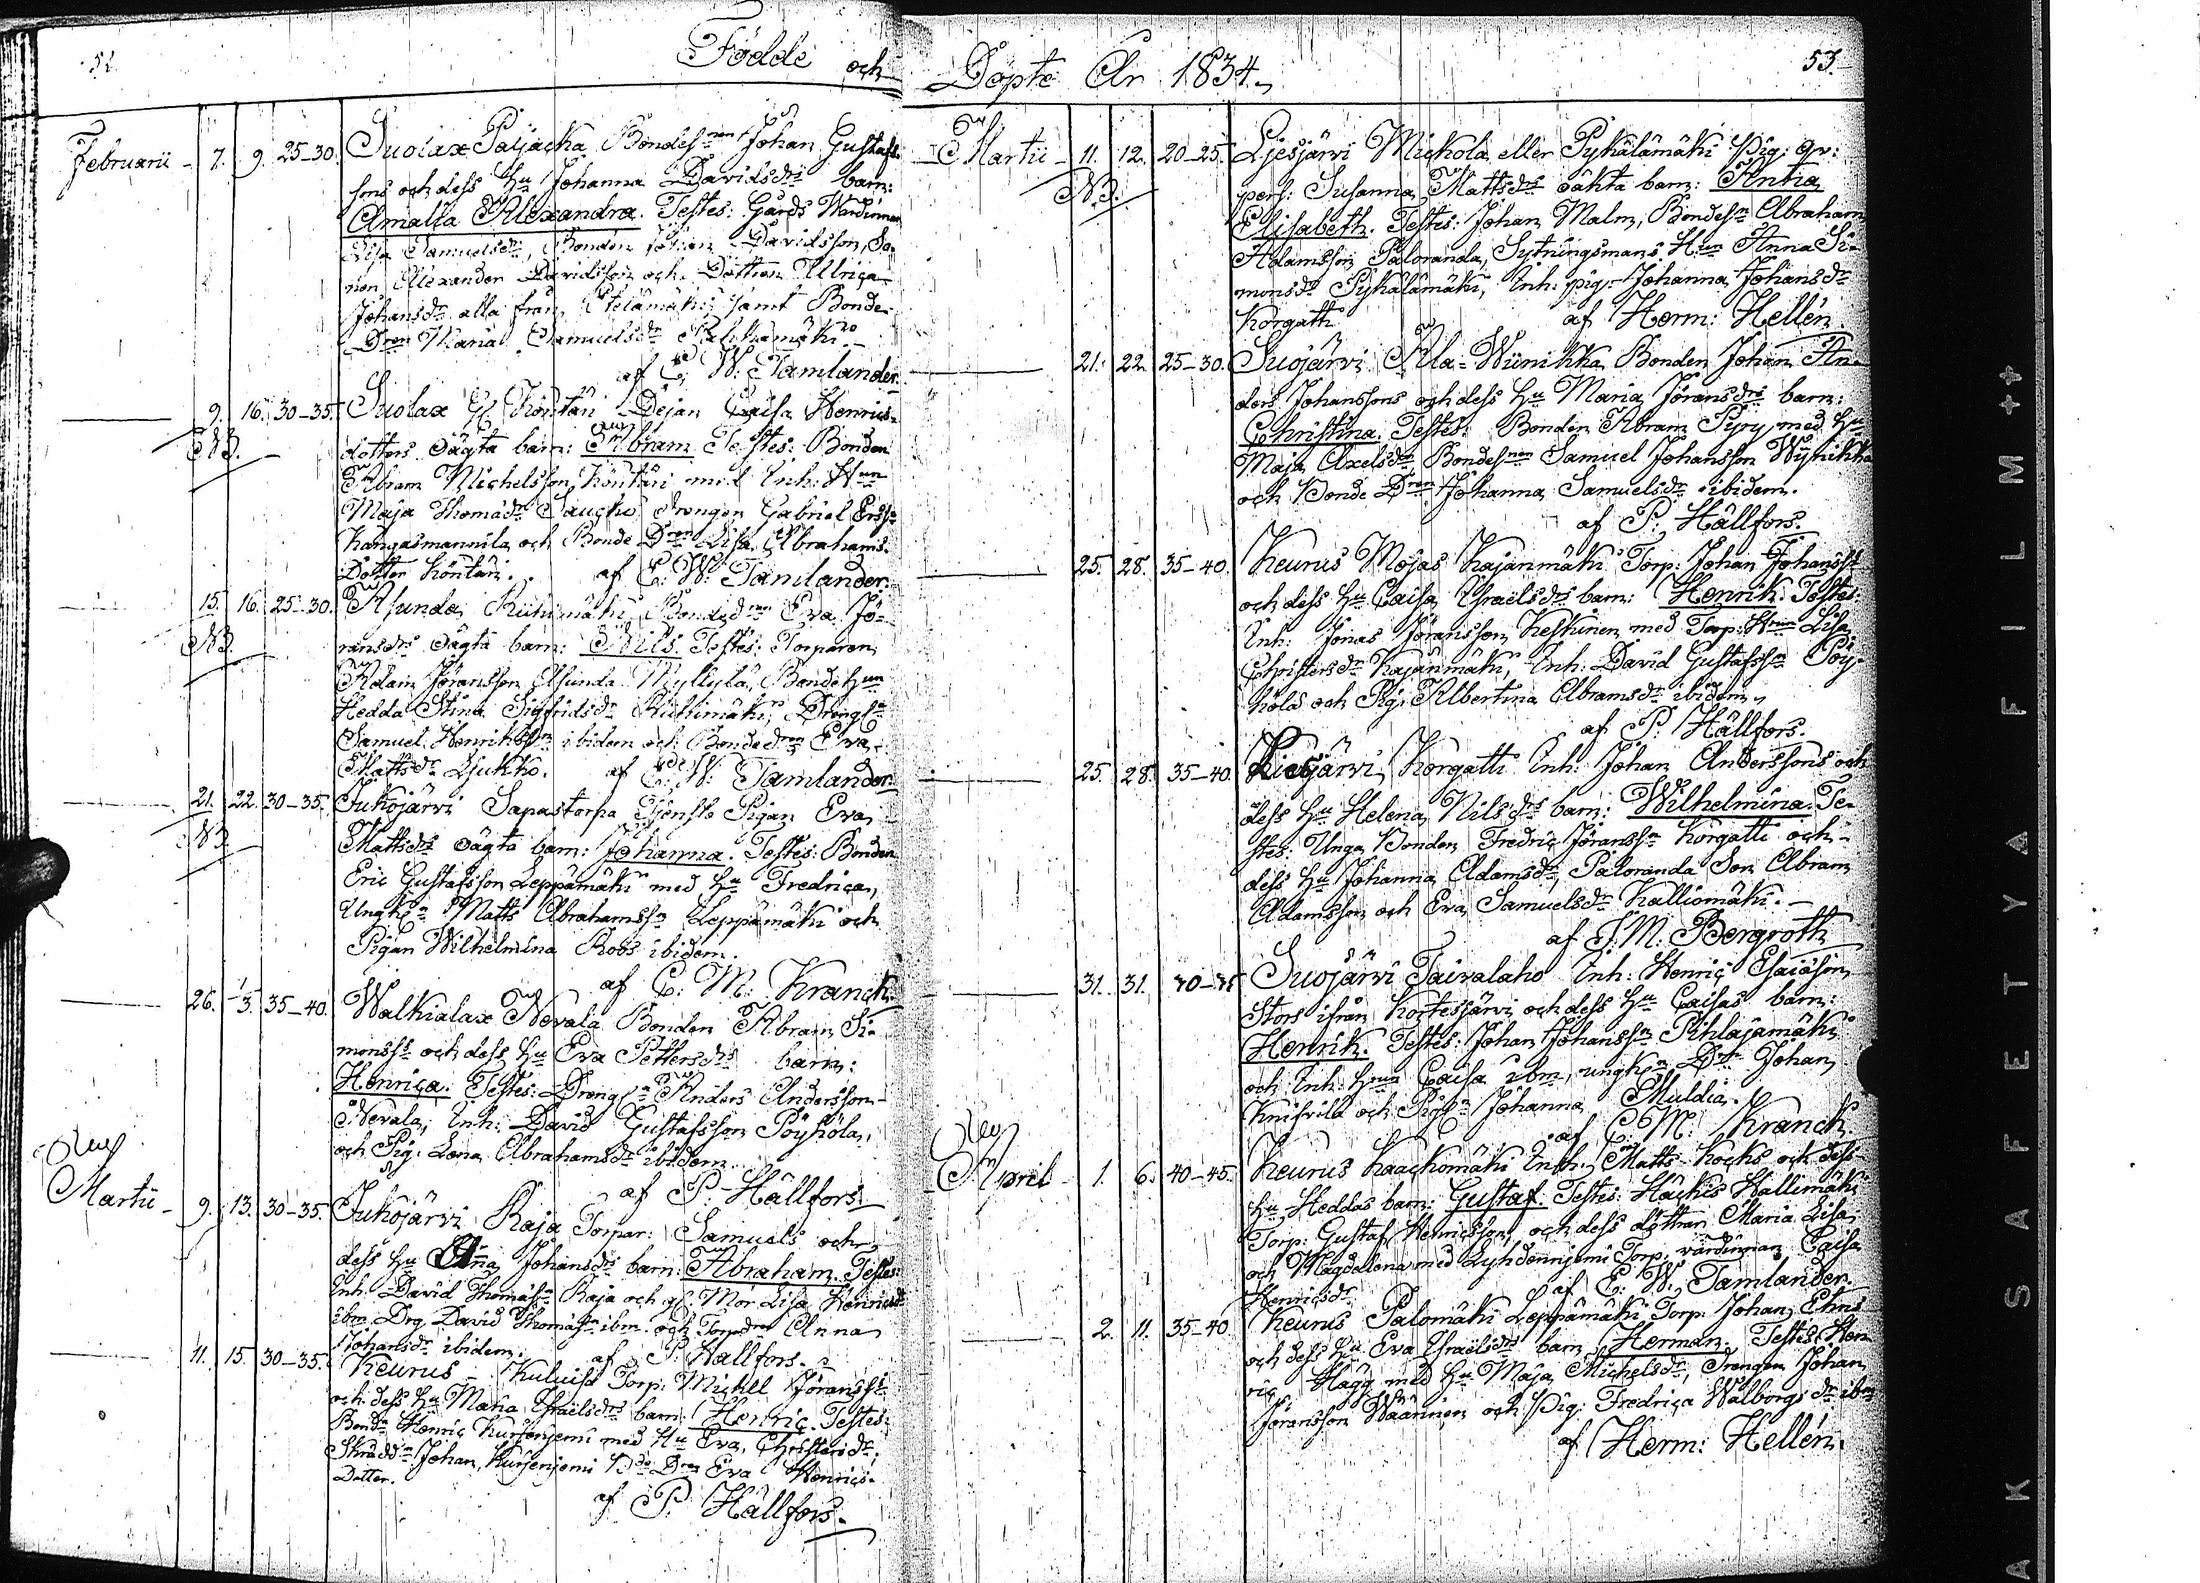 52.
Födde och
Februarii - 7. 9. 25-30. Suolax Paljacka Bondes:nen Johan Gustafs-
sons och dess Hu Johanna Davidsdrs barn:
Amalia Alexandra. Testes: Gårds Wärdinnan
Lisa Samuelsdr, Bonden Johan Davidsson, So-
nen Alexander Davidsson och Dottren Ulrica
Johansdr alla från samt Bonde
Dren Maria Samuelsdr
af C. W: Tamlander.
9. 16. 30-35. Suolax Gl. Köntäri Dejan Caisa Henrics-
NB. dotters oägta barn: Abram Testes: Bonden
Abram Michelsson Köntäri med Inh: Hun
Maja Thomædr Saucko Drengen Gabriel Erss:n
Kangasmannila och Bonde Dren Lisa Abrahams-
Dotter Köntäri. af C: W: Tamlander.
15. 16. 25-30. Asunda Riihimäki Bondedren Eva Jö-
NB. ransdrs oägta barn: Nils. Testes: Torparen
Adam Jöransson Asunda Myllylä, Bonde Hun
Hedda Stina Sigfridsdr Riihimäki, Drengs:n
Samuel Henrikss:n ibidem och Bondedren Eva
Mattsdr Ljukko. af C: W: Tamlander.
21. 22. 30-35. Jukojärvi Sapastorpa Tjenste Pigan Eva
NB. Mattsdrs oägta barn: Johanna. Testes: Bonden
Eric Gustafsson Leppämäki med Hu Fredrica,
Ungk:n Matts Abrahamss:n Leppämäki och
Pigan Wilhelmina Roos ibidem.
af C: M: Kranck.
26. 1/3. 35-40. Walkialax Nevala Bonden Abram Si-
monss:s och dess Hu Eva Pettersdrs barn:
Henrica. Testes: Drengs:n Anders Andersson
Nevala, Inh: David Gustafsson Pöyhölä,
och Pig: Lena Abrahamsdr ibidem.
af P: Hällfors.
Martii - 9. 13. 30-35. Jukojärvi Raja Torpar: Samuels och
dess Hu Anna Johansdrs barn: Abraham. Testes:
Inh. David Thomass:n Raja och gl: Mor Lisa Henricsdr
ibm Drg. David Thomass:n ibm. och Torpdren Anna
Johansdr ibidem. af P: Hallfors.
11. 15. 30-35. Keurus - Kuluisa Torp: Michel Jöranss:s
och dess Hu Maria Israelsdrs barn: Henric. Testes:
Bond:n Henric Kurjenjemi med Hu Eva Christersdr,
Skrädd:n Johan Kurjenjemi Bde Dren Eva Henrics-
Dotter.
af P: Hällfors.
Döpte År 1834.
53.
Martii - 11. 12. 20-25. Ljesjärvi Mickola eller Pykälämäki Pig: qv:
NB. pers: Susanna Mattsdrs oäkta barn: Antia
Elisabeth. Testes: Johan Malm, Bondes:n Abraham
Adamsson Paloranda, Sytningsmans Hun Anna Si-
monsdr Pykälämäki, Inh: pig: Johanna Johansdr
Körgatti af Herm: Hellén
21. 22. 25-30. Suojärvi Ala-Wiinikka Bonden Johan An-
ders Johanssons och dess Hu Maria Jöransdrs barn:
Christina. Testes: Bonden Abram Pyry med Hu
Maja Axelsdr, Bondes:nen Samuel Johansson Wynikka
och Bonde Dren Johanna Samuelsdr ibidem.
af P: Hällfors.
25. 28. 35-40. Keurus Mojas Kajanmäki Torp: Johan Johanss:s
och dess Hu Caisa Israelsdrs barn: Henrik. Testes:
Inh: Jonas Jöransson Keskinen med Torp: Hrun Lisa
Christersdr Kajanmäki, Inh: David Gustafss:n Pöy-
hölä och Pig: Albertina Abramsdr ibidem,
af P: Hällfors.
25. 28. 35-40. Liesjärvi Körgatti Inh. Johan Anderssons och
dess Hu Helena Nilsdrs barn: Wilhelmina. Te-
stes: Unga Bonden Fredric Jöranss:n Körgatti och
dess Hu Johanna Adamsdr, Paloranda Son Abram
Adamsson och Eva Samuelsdr Kalliomäki. -
af J. M: Bergroth
31. 31. Suojärvi Taivalaho Inh: Henric Esaiäson
Stors ifrån Kortesjärvi och dess Hu Caisas barn:
Henrik. Testes: Johan Johanss:n Pihlajamäki
och Inh: Hrun Caisa ibm, ungk:n Johan
Knifvilä och Johanna Muldia.
af C: M: Kranck.
April - 1. 6. 40-45. Keurus Kaackomäki Inh: Matts Kocks och dess
Hu Heddas barn: Gustaf. Testes: Häckis Hallimäki
Torp: Gustaf Henricsson, och dess döttrar Maria Lisa
och Magdalena med Lyhdennjemi Torp, värdinnan Caisa
Henricsdr af C: W: Tamlander.
2. 11. 35-40. Keurus Palomäki Leppämäki Torp: Johan Ehns
och dess Hu Eva Israelsdrs barn: Herman. Testes: Hen-
ric Hägg med Hu Maja Michelsdr, Drengen Johan
Jöransson Waäninen och Pig: Fredrica Walborgs dr ibm
af Herm: Hellén.
SAFETY AFILM ++